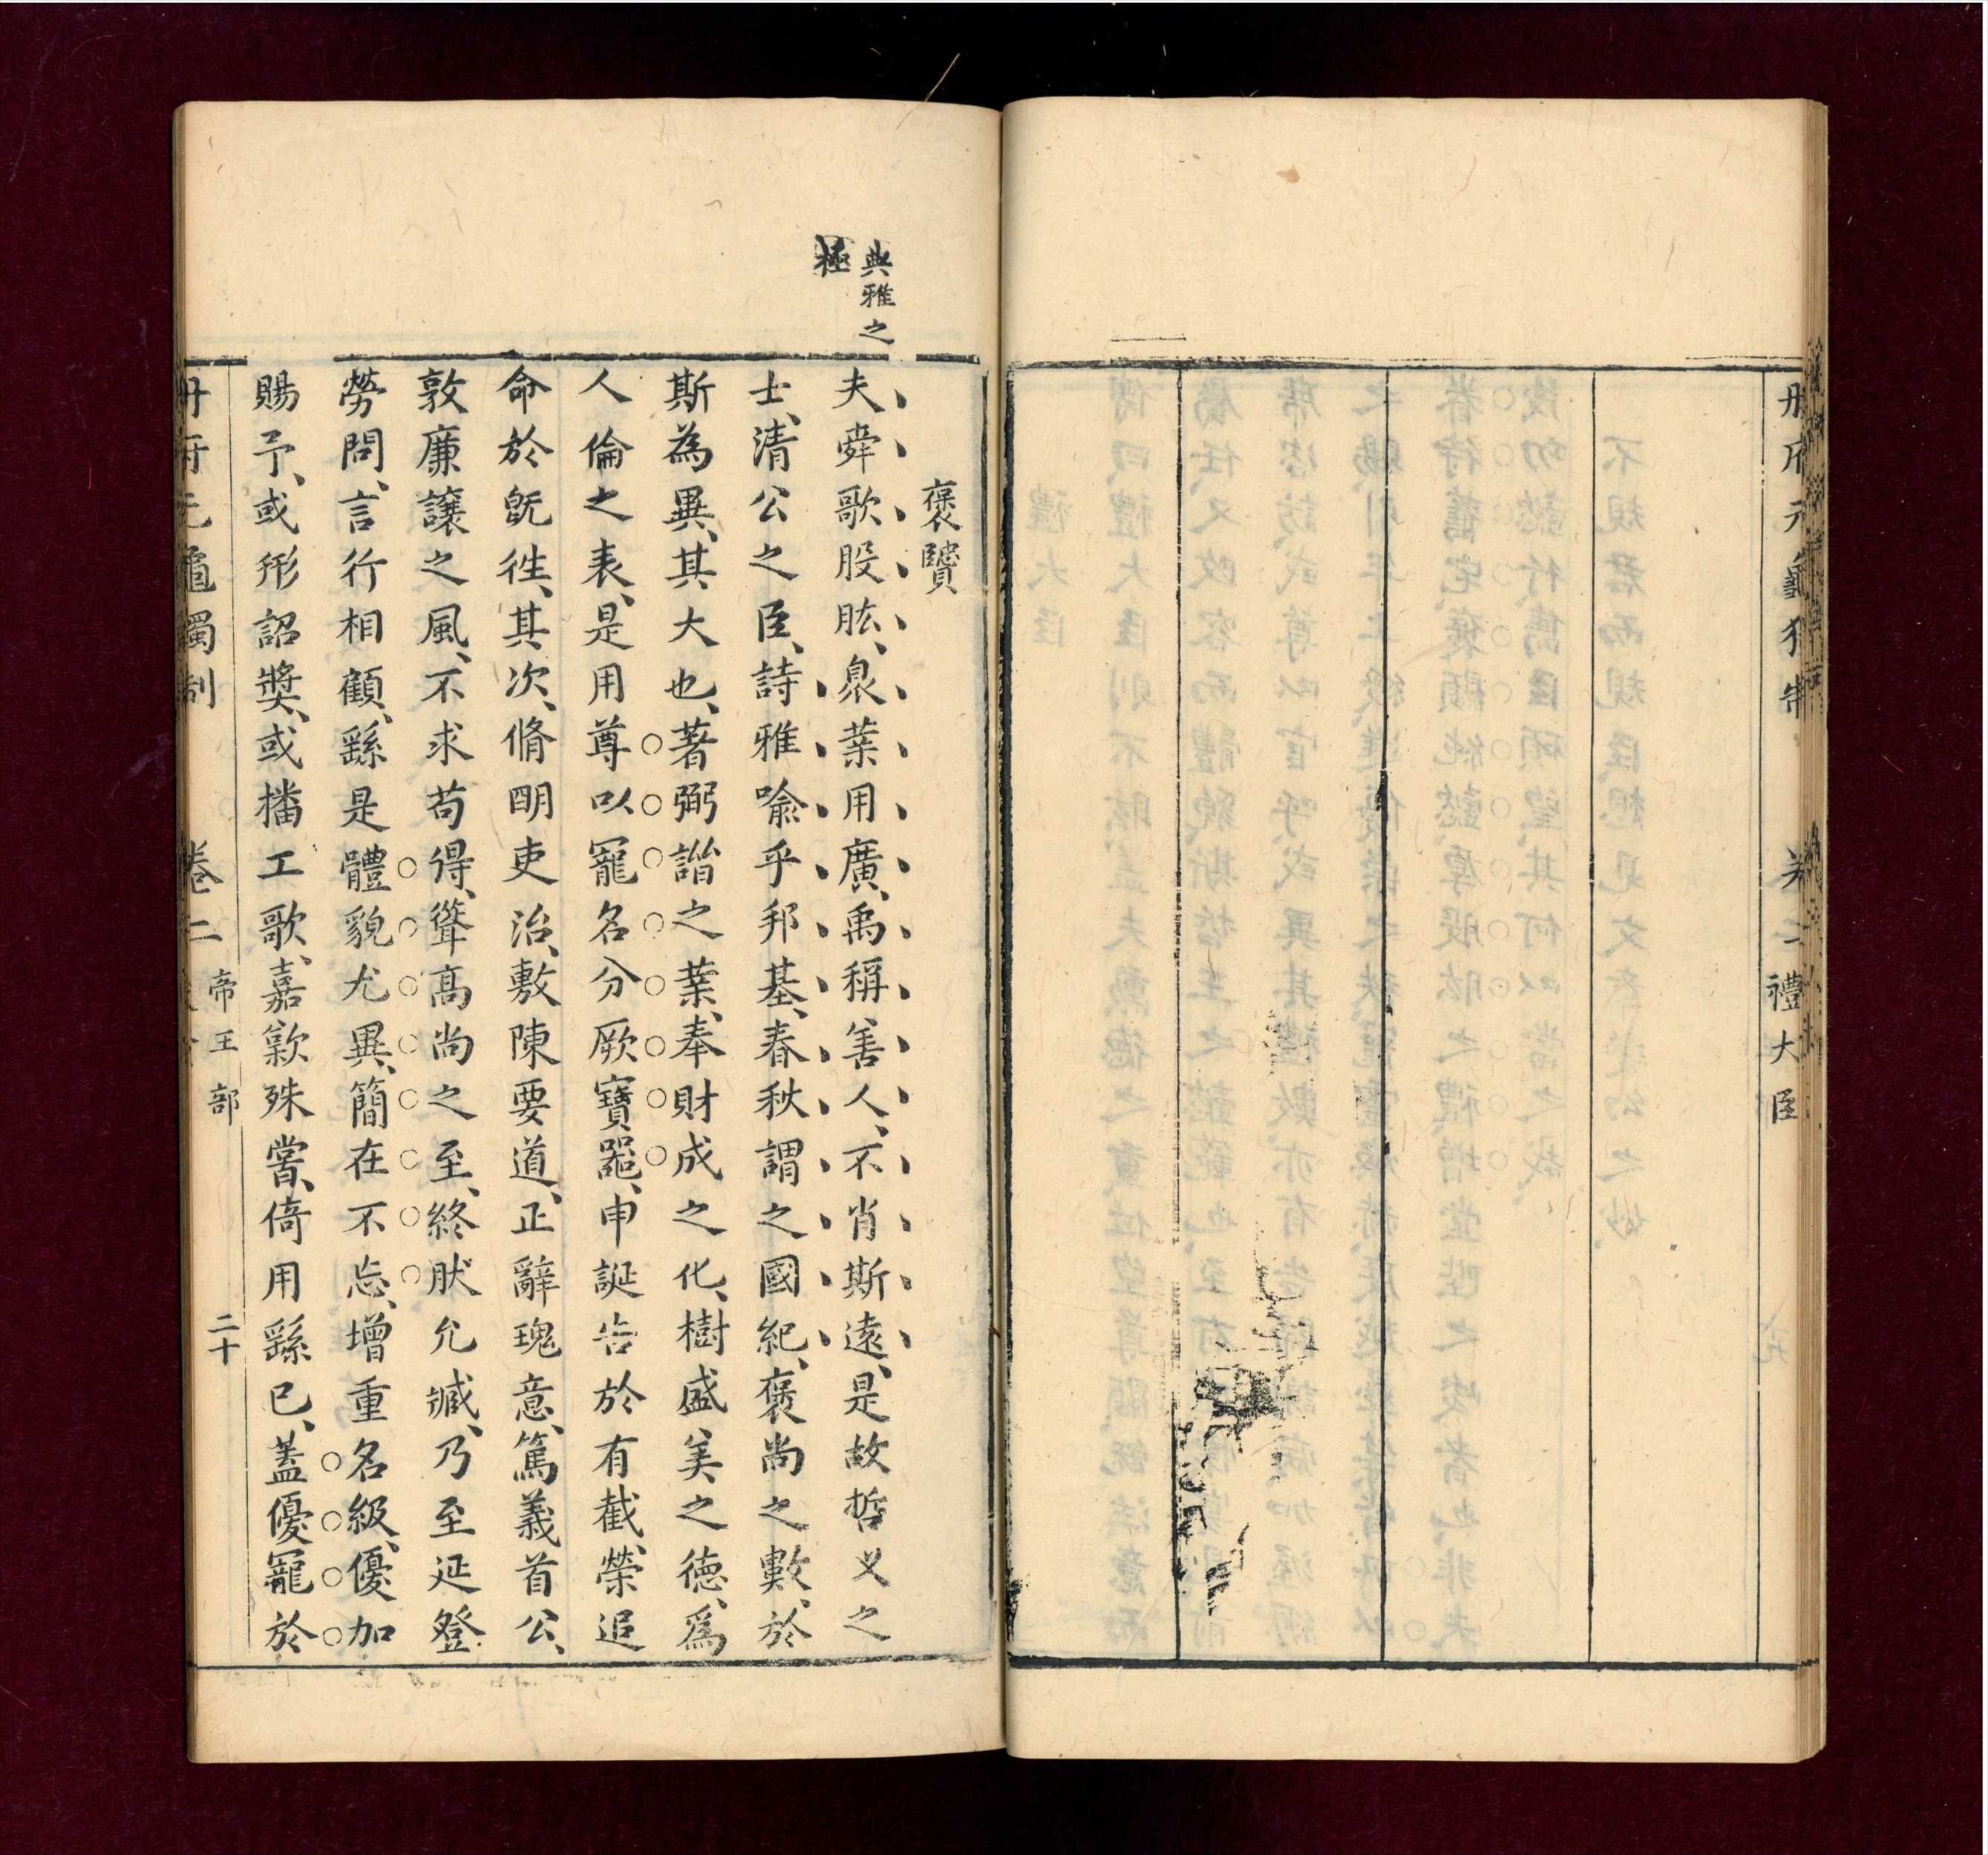 禮大臣
典雅之
極
褒贒
夫舜歌股肱、泉葉用廣、禹稱善人、不肖斯遠、是故哲乂之
士、清公之臣、詩雅喻乎邦基、春秋謂之國紀、褒尚之數、於
斯為異、其大也、著弼諧之業、奉財成之化、樹盛美之德、爲
人倫之表、是用尊以寵名分厥寶器、申誕告於有截、榮追
命於旣徃、其次、脩明吏治、敷陳要道、正辭瑰意、篤義首公、
敦廉讓之風、不求苟得、聳高尚之至、終肰允臧、乃至延登
勞問、言行相顧、繇是體貌尤異、簡在不忘、增重名級、優加
賜予、或形詔奬、或播工歌、嘉欵殊嘗、倚用繇已、蓋優寵於
冊府元龜獨制 卷二 帝王部 二十